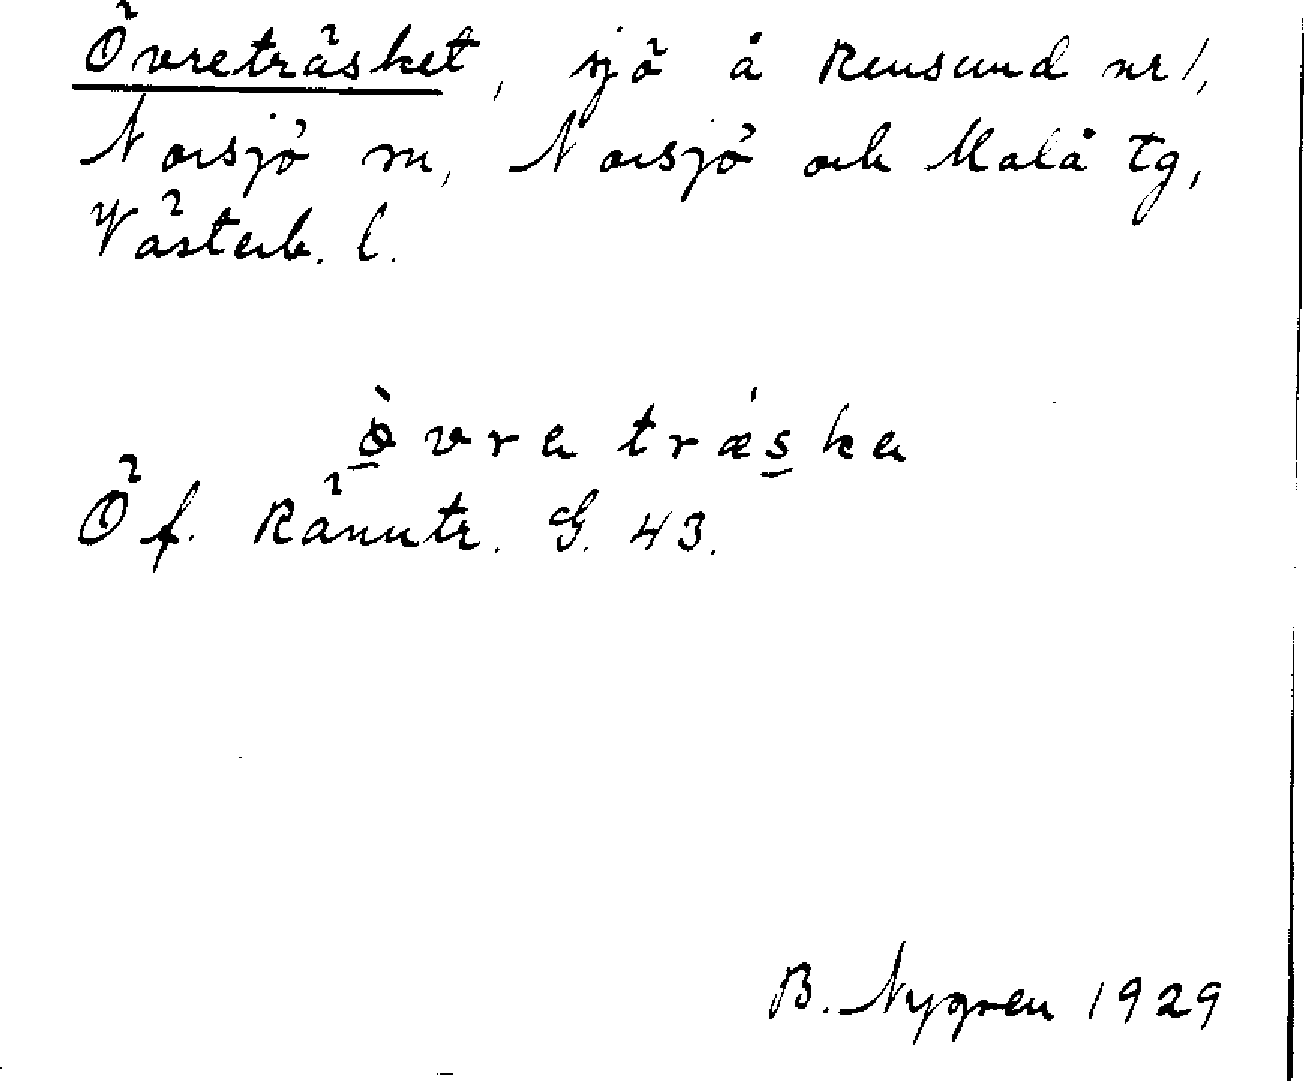 Övreträsket, sjö å Rensund nr 1,
Norsjö sn, Norsjö och Malå tg,
Västerb. l.
ö̀vra trǽska
Ö f. Ränntr. G. 43.
B. Nygren 1929